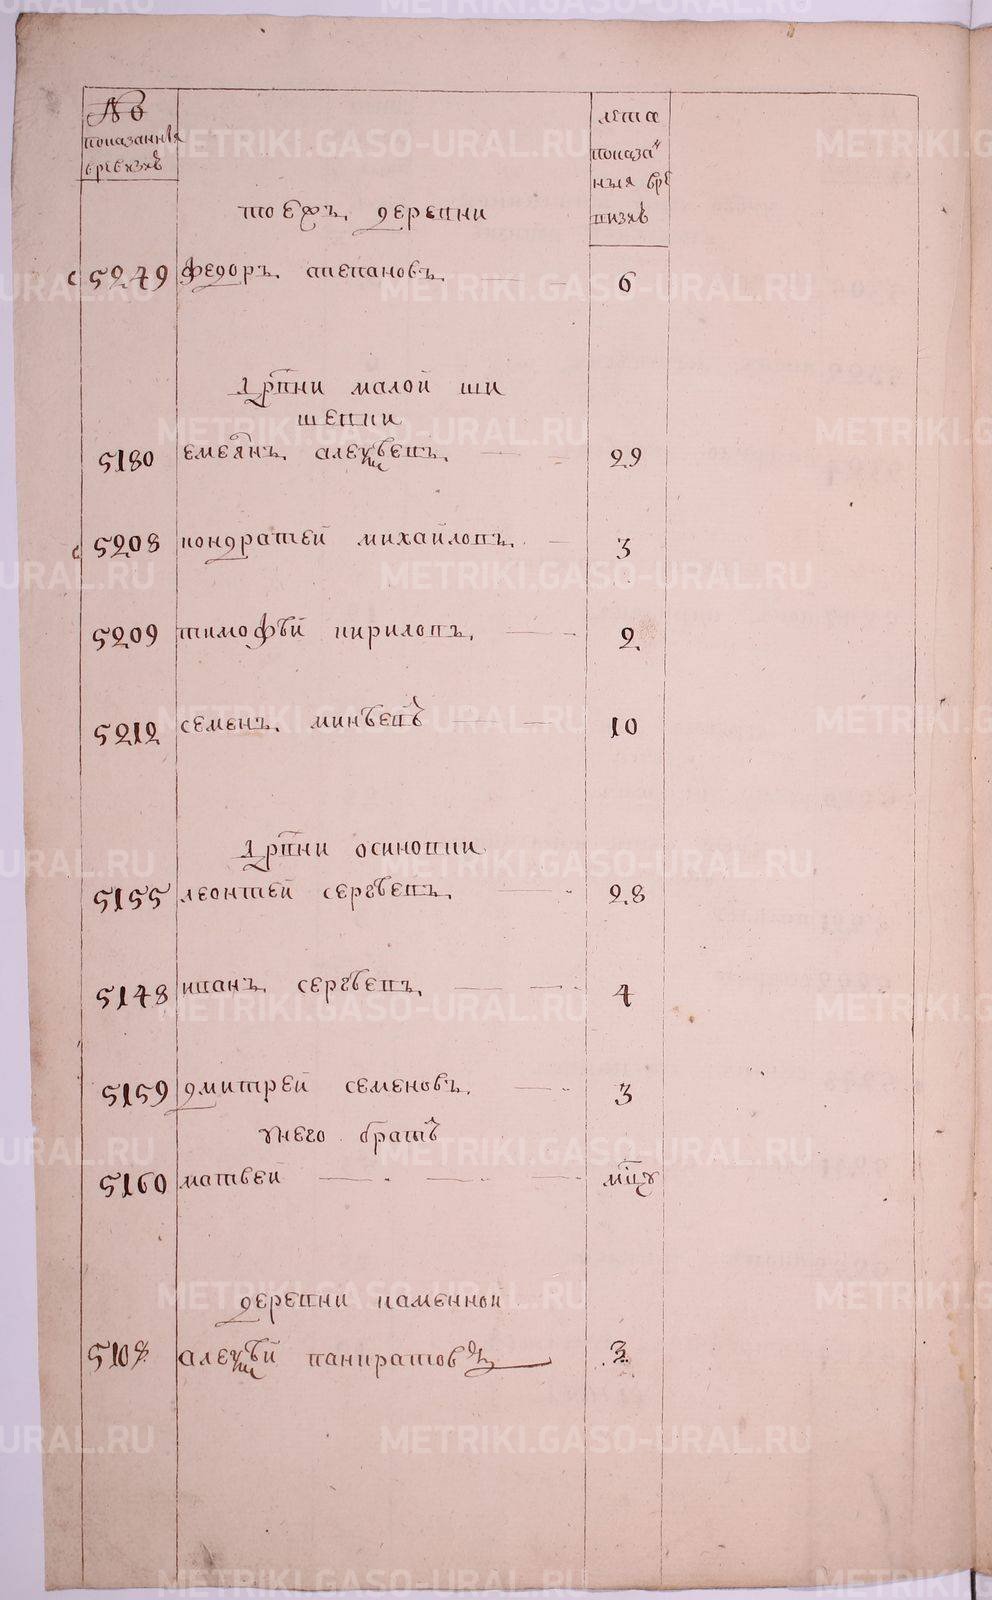 №
показанныя
вревизиѣ
лета
показан
ныя вре
визиѣ
тоежъ деревни
5249 федоръ степановъ 6
дрвни малой ши
шевки
5180 емелянъ алексѣевъ 29
5208 кондратей михайловъ 3
5209 тимофѣй кириловъ 2
5212 семенъ минѣевъ 10
дрвни осиновки
5155 леонтей сергѣевъ 28
5148 иванъ сергѣевъ 4
5159 дмитрей семеновъ 3
унего братъ
5160 матвей мцу
деревни каменной
5108 алексѣй панкратовъ 3
METRIKI.GASO-URAL.RU